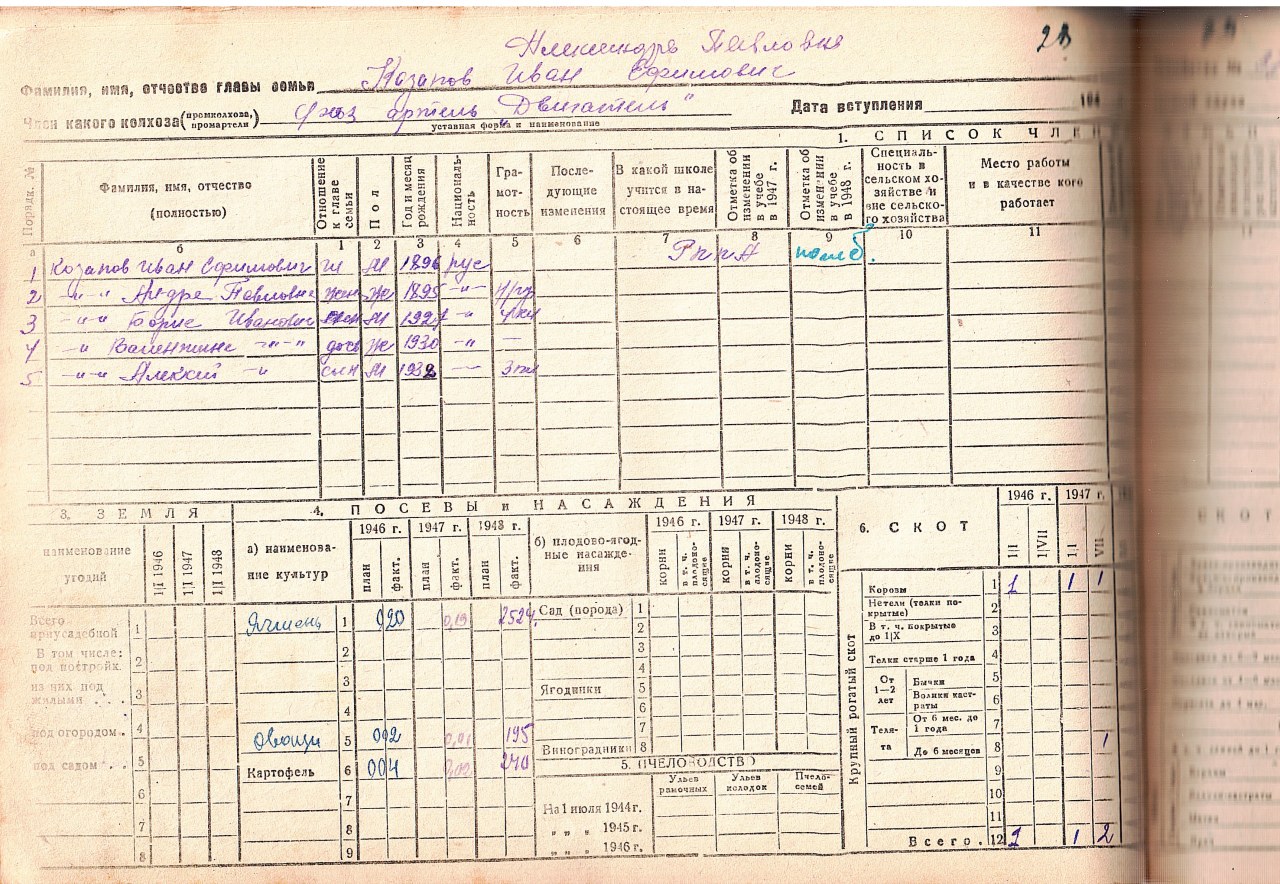 23
Павловна
Фамилия, имя, отчество главы семьи Казапов Иван Ефимович
Член какого колхоза (промколхоза, промартели) артель „Двигатель" Дата вступления 194
уставная форма и наименование
1. СПИСОК ЧЛЕН
Порядк. № Фамилия, имя, отчество (полностью) Отношение к главе семьи Пол Год и месяц рождения Националь-ность Гра-мот-ность После-дующие изменения В какой школе учится в на-стоящее время Отметка об изменении в учебе в 1947 г. Отметка об изменении в учебе в 1948 г. Специаль-ность в сельском хо-зяйстве и вне сельско-го хозяйства Место работы и в качестве кого работает
а б 1 2 3 4 5 6 7 8 9 10 11
1 Казапов Иван Ефимович М 1896 рус
2 -"-"- Павловна жен ж 1895 -"-
3 -"-"- Борис Иванович М -"
4 -" Валентина -"-"- дочь ж 1930 -"- —
5 -"-"- Алексей -" сын М 1932 -"-
3. ЗЕМЛЯ
наименование угодий 1|I 1946 1|I 1947 1|I 1948
Всего приусадебной 1
В том числе: под постройк. 2
из них под жилыми . . 3
под огородом . 4
под садом . . . 5
6
7
8
4. ПОСЕВЫ и НАСАЖДЕНИЯ
а) наименова-ние культур 1946 г. 1947 г. 1948 г.
план факт. план факт. план факт.
Ячмень 1 0,20 0,19
2
3
4
Овощи 5 002 0,01 195
Картофель 6 004 0,02 240
7
8
9
б) плодово-ягод-ные насажде-ния 1946 г. 1947 г. 1948 г.
корни в т. ч. плодоно-сящие корни в т. ч. плодоно-сящие корни в т. ч. плодоно-сящие
Сад (порода) 1
2
3
4
Ягодники 5
6
7
Виноградники 8
5. ПЧЕЛОВОДСТВО
Ульев рамочных Ульев колодок Пчело-семей
На 1 июля 1944 г.
„ „ „ 1945 г.
„ „ „ 1946 г.
6. СКОТ 1946 г. 1947 г.
1|I 1|VII 1|I VII
Крупный рогатый скот
Коровы 1 1 1 1
Нетели (телки по-крытые) 2
В т. ч. покрытые до 1|X 3
Телки старше 1 года 4
От 1—2 лет Бычки 5
Волики каст-раты 6
Теля-та От 6 мес. до 1 года 7
До 6 месяцев 8 1
9
10
11
Всего . 12 1 1 2